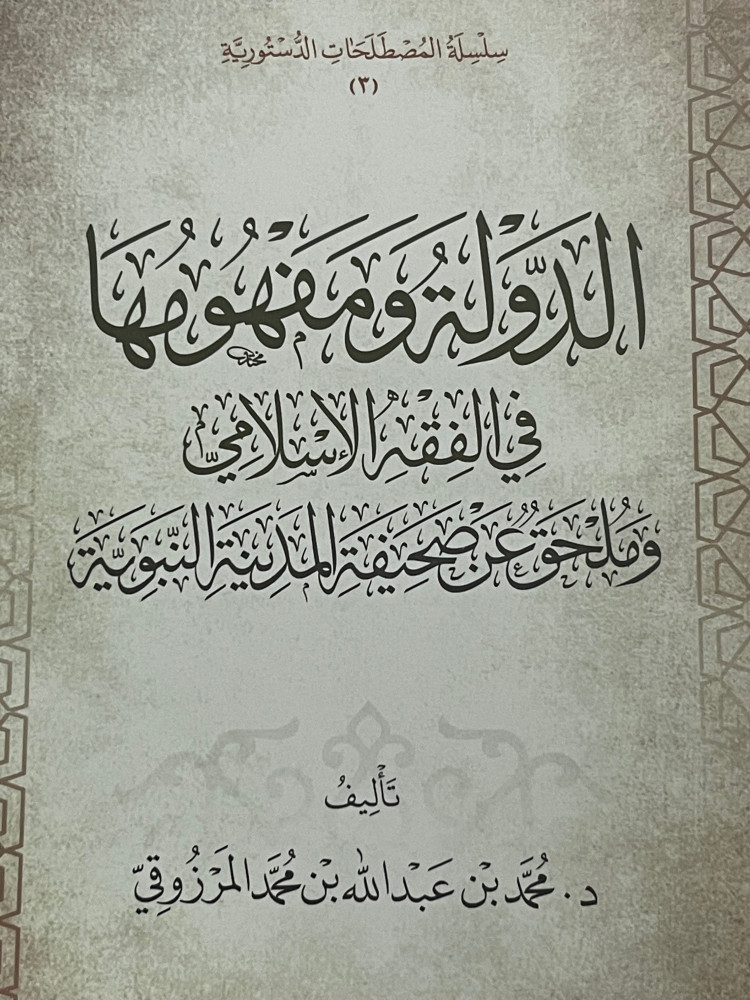 سِلْسِلَةُ المُصْطَلَحَاتِ الدُّسْتُورِيَّةِ
(٣)
الدَّوْلَةُ وَمَفْهُومُهَا
فِي الفِقْهِ الإِسْلَامِيِّ
وَمُلْحَقٌ عَنْ صَحِيفَةِ المَدِينَةِ النَّبَوِيَّةِ
تَأْلِيفُ
د. مُحَمَّد بْن عَبْد اللَّه بْن مُحَمَّد المَرْزُوقِيّ